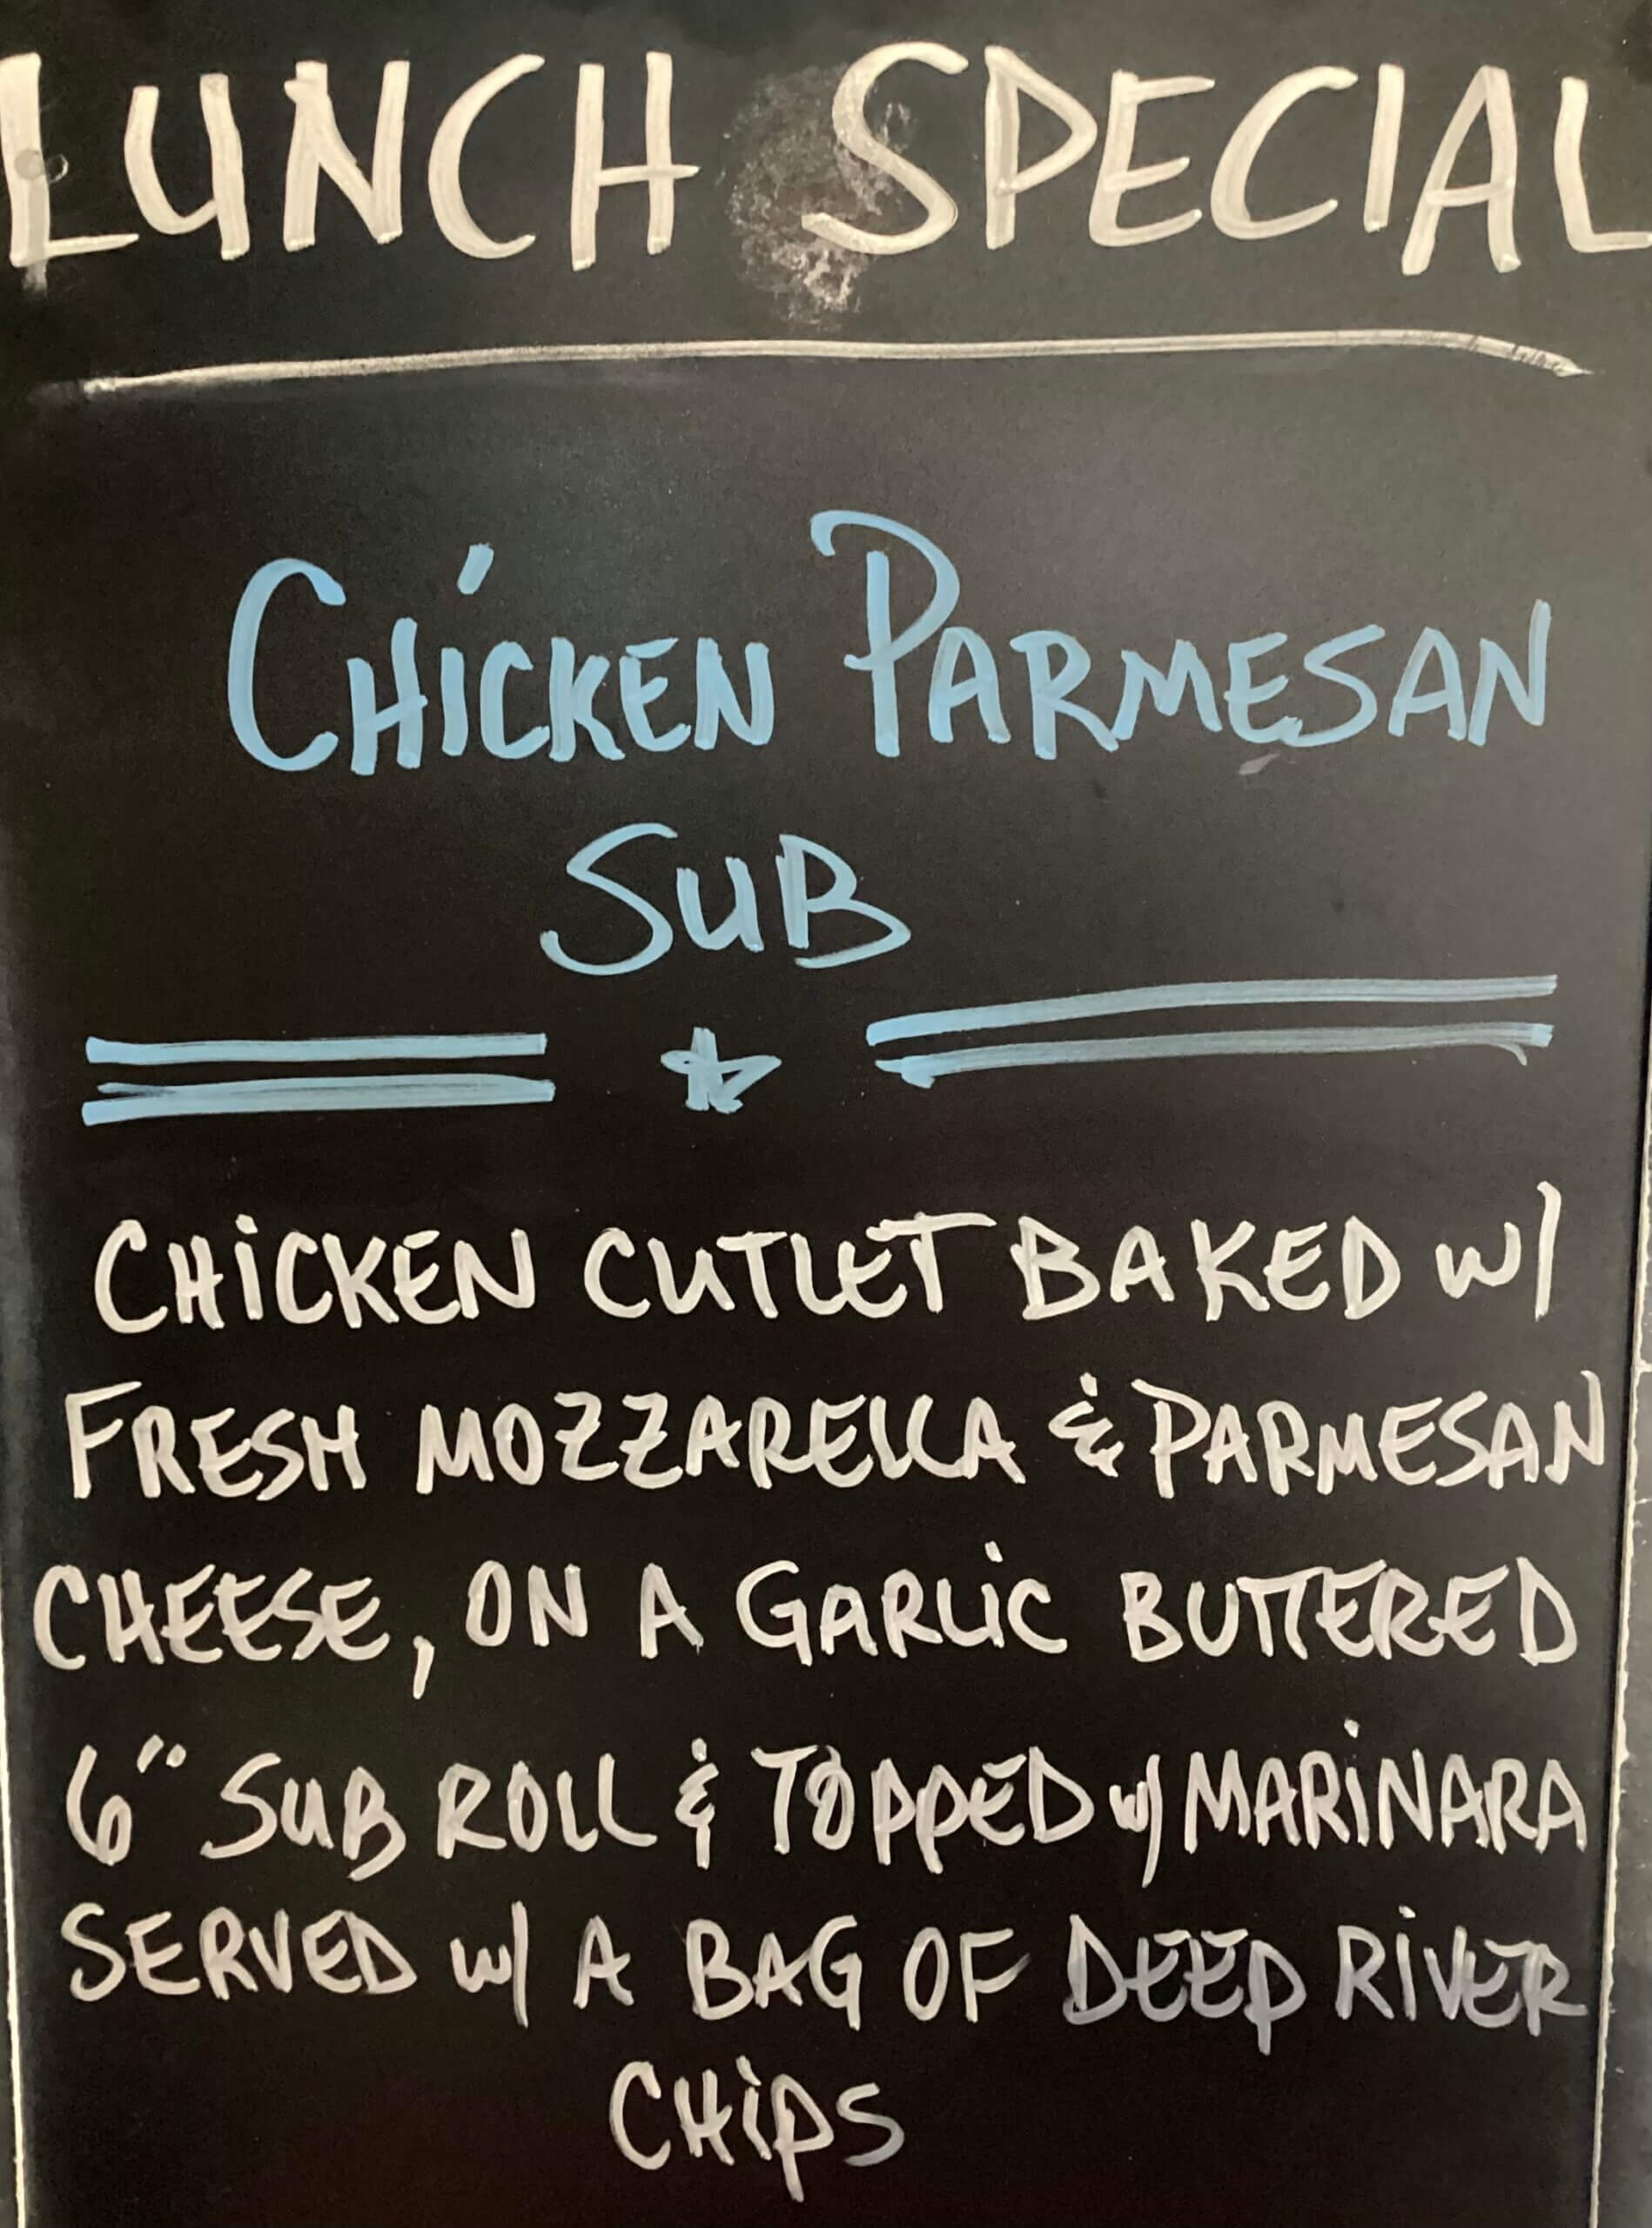 LUNCH SPECIAL
CHICKEN PARMESAN
SUB
CHICKEN CUTLET BAKED W/
FRESH MOZZARELLA & PARMESAN
CHEESE, ON A GARLIC BUTTERED
6" SUB ROLL & TOPPED W/ MARINARA
SERVED W/ A BAG OF DEEP RIVER
CHIPS